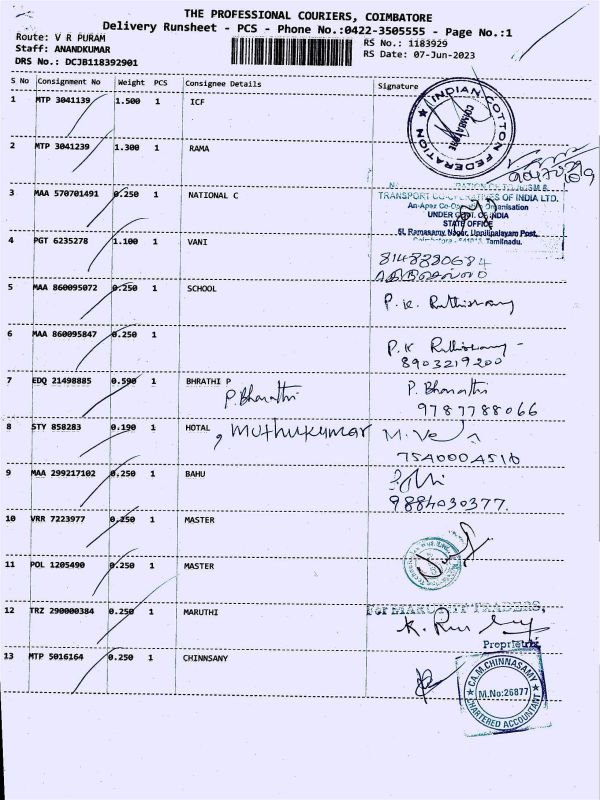 THE PROFESSIONAL COURIERS, COIMBATORE
Delivery Runsheet - PCS - Phone No.:0422-3505555 - Page No.:1
Route: V R PURAM
Staff: ANANDKUMAR
DRS No.: DCJB118392901
RS No.: 1183929
RS Date: 07-Jun-2023
S No Consignment No Weight PCS Consignee Details Signature
1 MTP 3041139 1.500 1 ICF
INDIAN COTTON FEDERATION
COIMBATORE
2 MTP 3041239 1.300 1 RAMA
3 MAA 570701491 0.250 1 NATIONAL C
TRANSPORT OF INDIA LTD.
An Apex Organisation
UNDER GOVT. OF INDIA
STATE OFFICE
51, Ramasamy Nagar, Uppilipalayam Post,
Tamilnadu.
4 PGT 6235278 1.100 1 VANI
8148330684
5 MAA 860095072 0.250 1 SCHOOL
6 MAA 860095847 0.250 1
8903219200
7 EDQ 21498885 0.590 1 BHRATHI P
P. Bharathi P. Bharathi
9787788066
8 STY 858283 0.190 1 HOTAL , muthukumar
7540004510
9 MAA 299217102 0.250 1 BAHU
9884030377.
10 VRR 7223977 0.250 1 MASTER
11 POL 1205490 0.250 1 MASTER
12 TRZ 290000384 0.250 1 MARUTHI
For MARUTHI TRADERS,
Proprietrix
13 MTP 5016164 0.250 1 CHINNSANY
CA. M. CHINNASAMY
M.No:26877
CHARTERED ACCOUNTANT